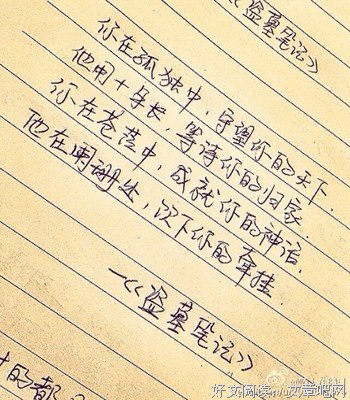 《盗墓笔记》
你在孤独中，守望你的天下.
他用十年长，等待你的归家.
你在苍茫中，成就你的神话.
他在阑珊处，饮下你的牵挂.
—《盗墓笔记》
的都
好文阅读 文章吧网